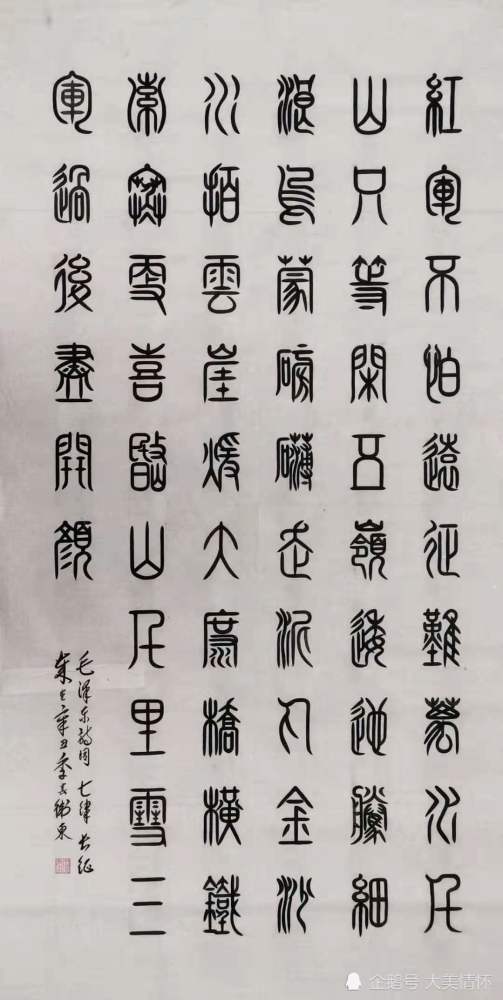 紅軍不怕遠征難萬水千
山只等閑五嶺逶迤騰細
浪烏蒙磅礴走泥丸金沙
水拍雲崖暖大度橋橫鐵
索寒更喜岷山千里雪三
軍過後盡開顏
毛泽东詩詞 七律 长征
辛丑季
企鹅号 大美情怀